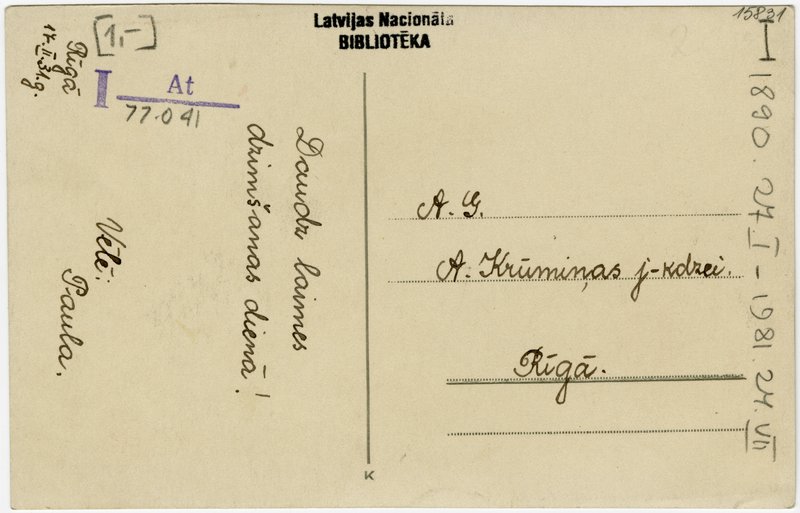 Latvijas Nacionālā
BIBLIOTĒKA
15831
[1,-]
Rīgā
17.II.31.g.
I At
77.0 41
Daudz laimes
dzimšanas dienā!
Vēlē:
Paula.
A. G.
A. Krūmiņas j-kdzei.
Rīgā.
K
1890. 24 I – 1981. 24. VII